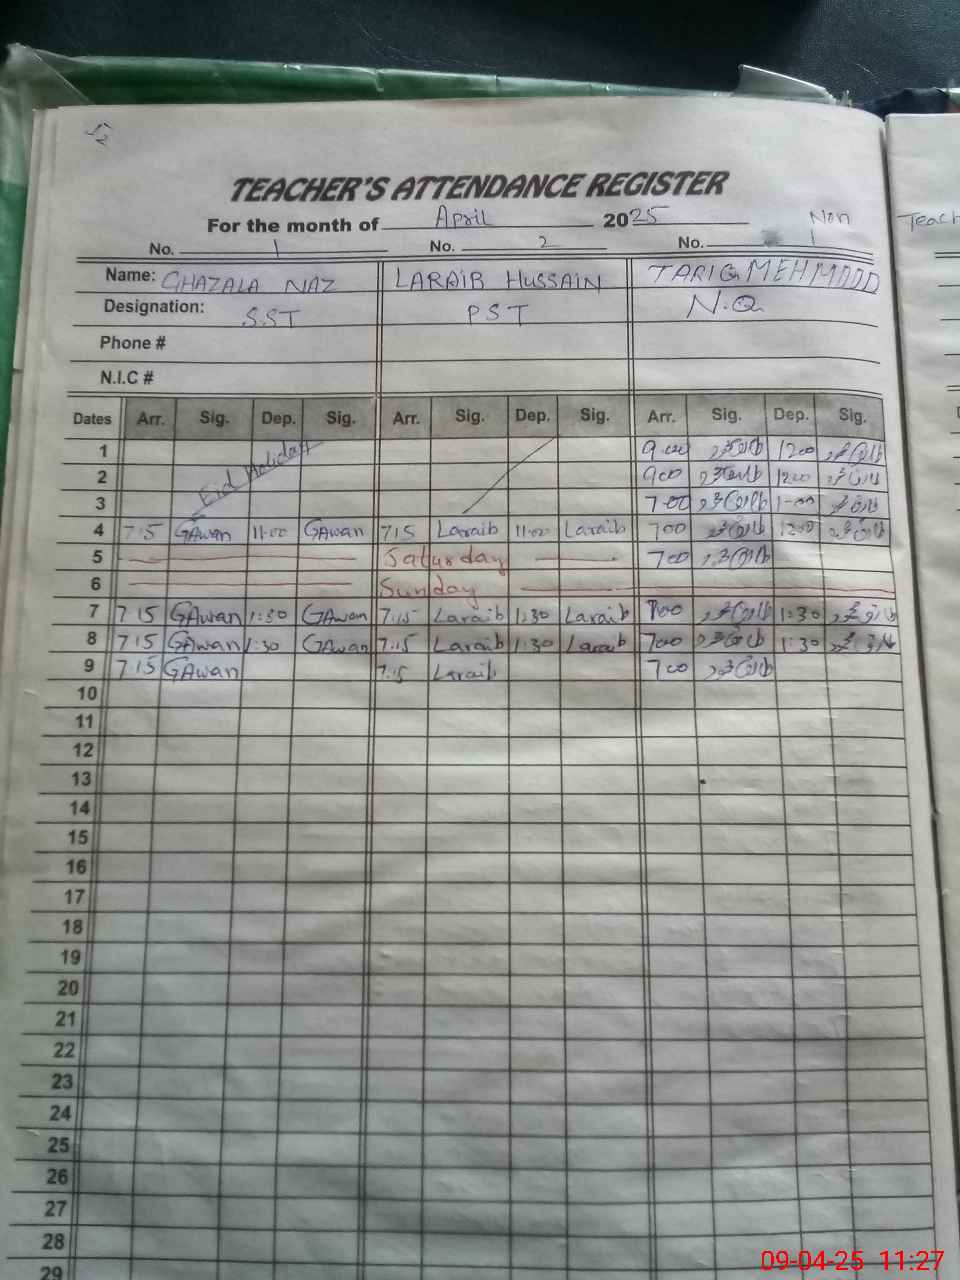 TEACHER'S ATTENDANCE REGISTER
For the month of April 2025 Non
No. 1 No. 2 No. 1 Teach
Name: GHAZALA NAZ LARAIB HUSSAIN TARIQ MEHMOOD
Designation: S.S.T P S T N.Q
Phone #
N.I.C #
Dates Arr. Sig. Dep. Sig. Arr. Sig. Dep. Sig. Arr. Sig. Dep. Sig.
1 Eid Holiday 9.00 1200
2 900 1200
3 7.00 1-00
4 7.15 GAwan 11.00 GAwan 715 Laraib 11.00 Laraib 700 1200
5 Saturday 700
6 Sunday
7 7.15 GAwan 1:30 GAwan 7:15 Laraib 1:30 Laraib 700 1:30
8 7.15 GAwan 1:30 GAwan 7:15 Laraib 1:30 Laraib 700 1:30
9 7.15 GAwan 7:15 Laraib 700
10
11
12
13
14
15
16
17
18
19
20
21
22
23
24
25
26
27
28
29
09-04-25 11:27